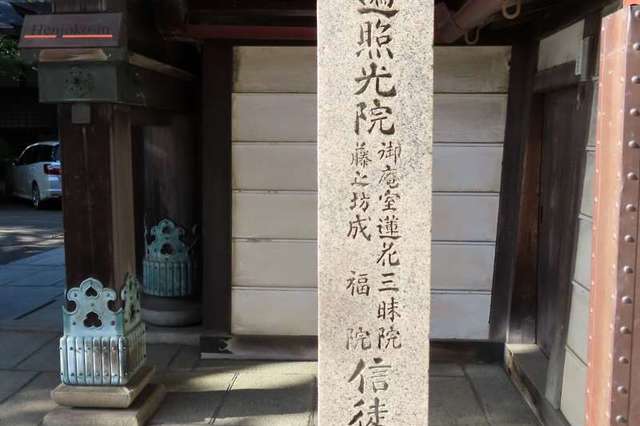 Henjokoin
遍照光院
御庵室蓮花三昧院
藤之坊成福院
信徒